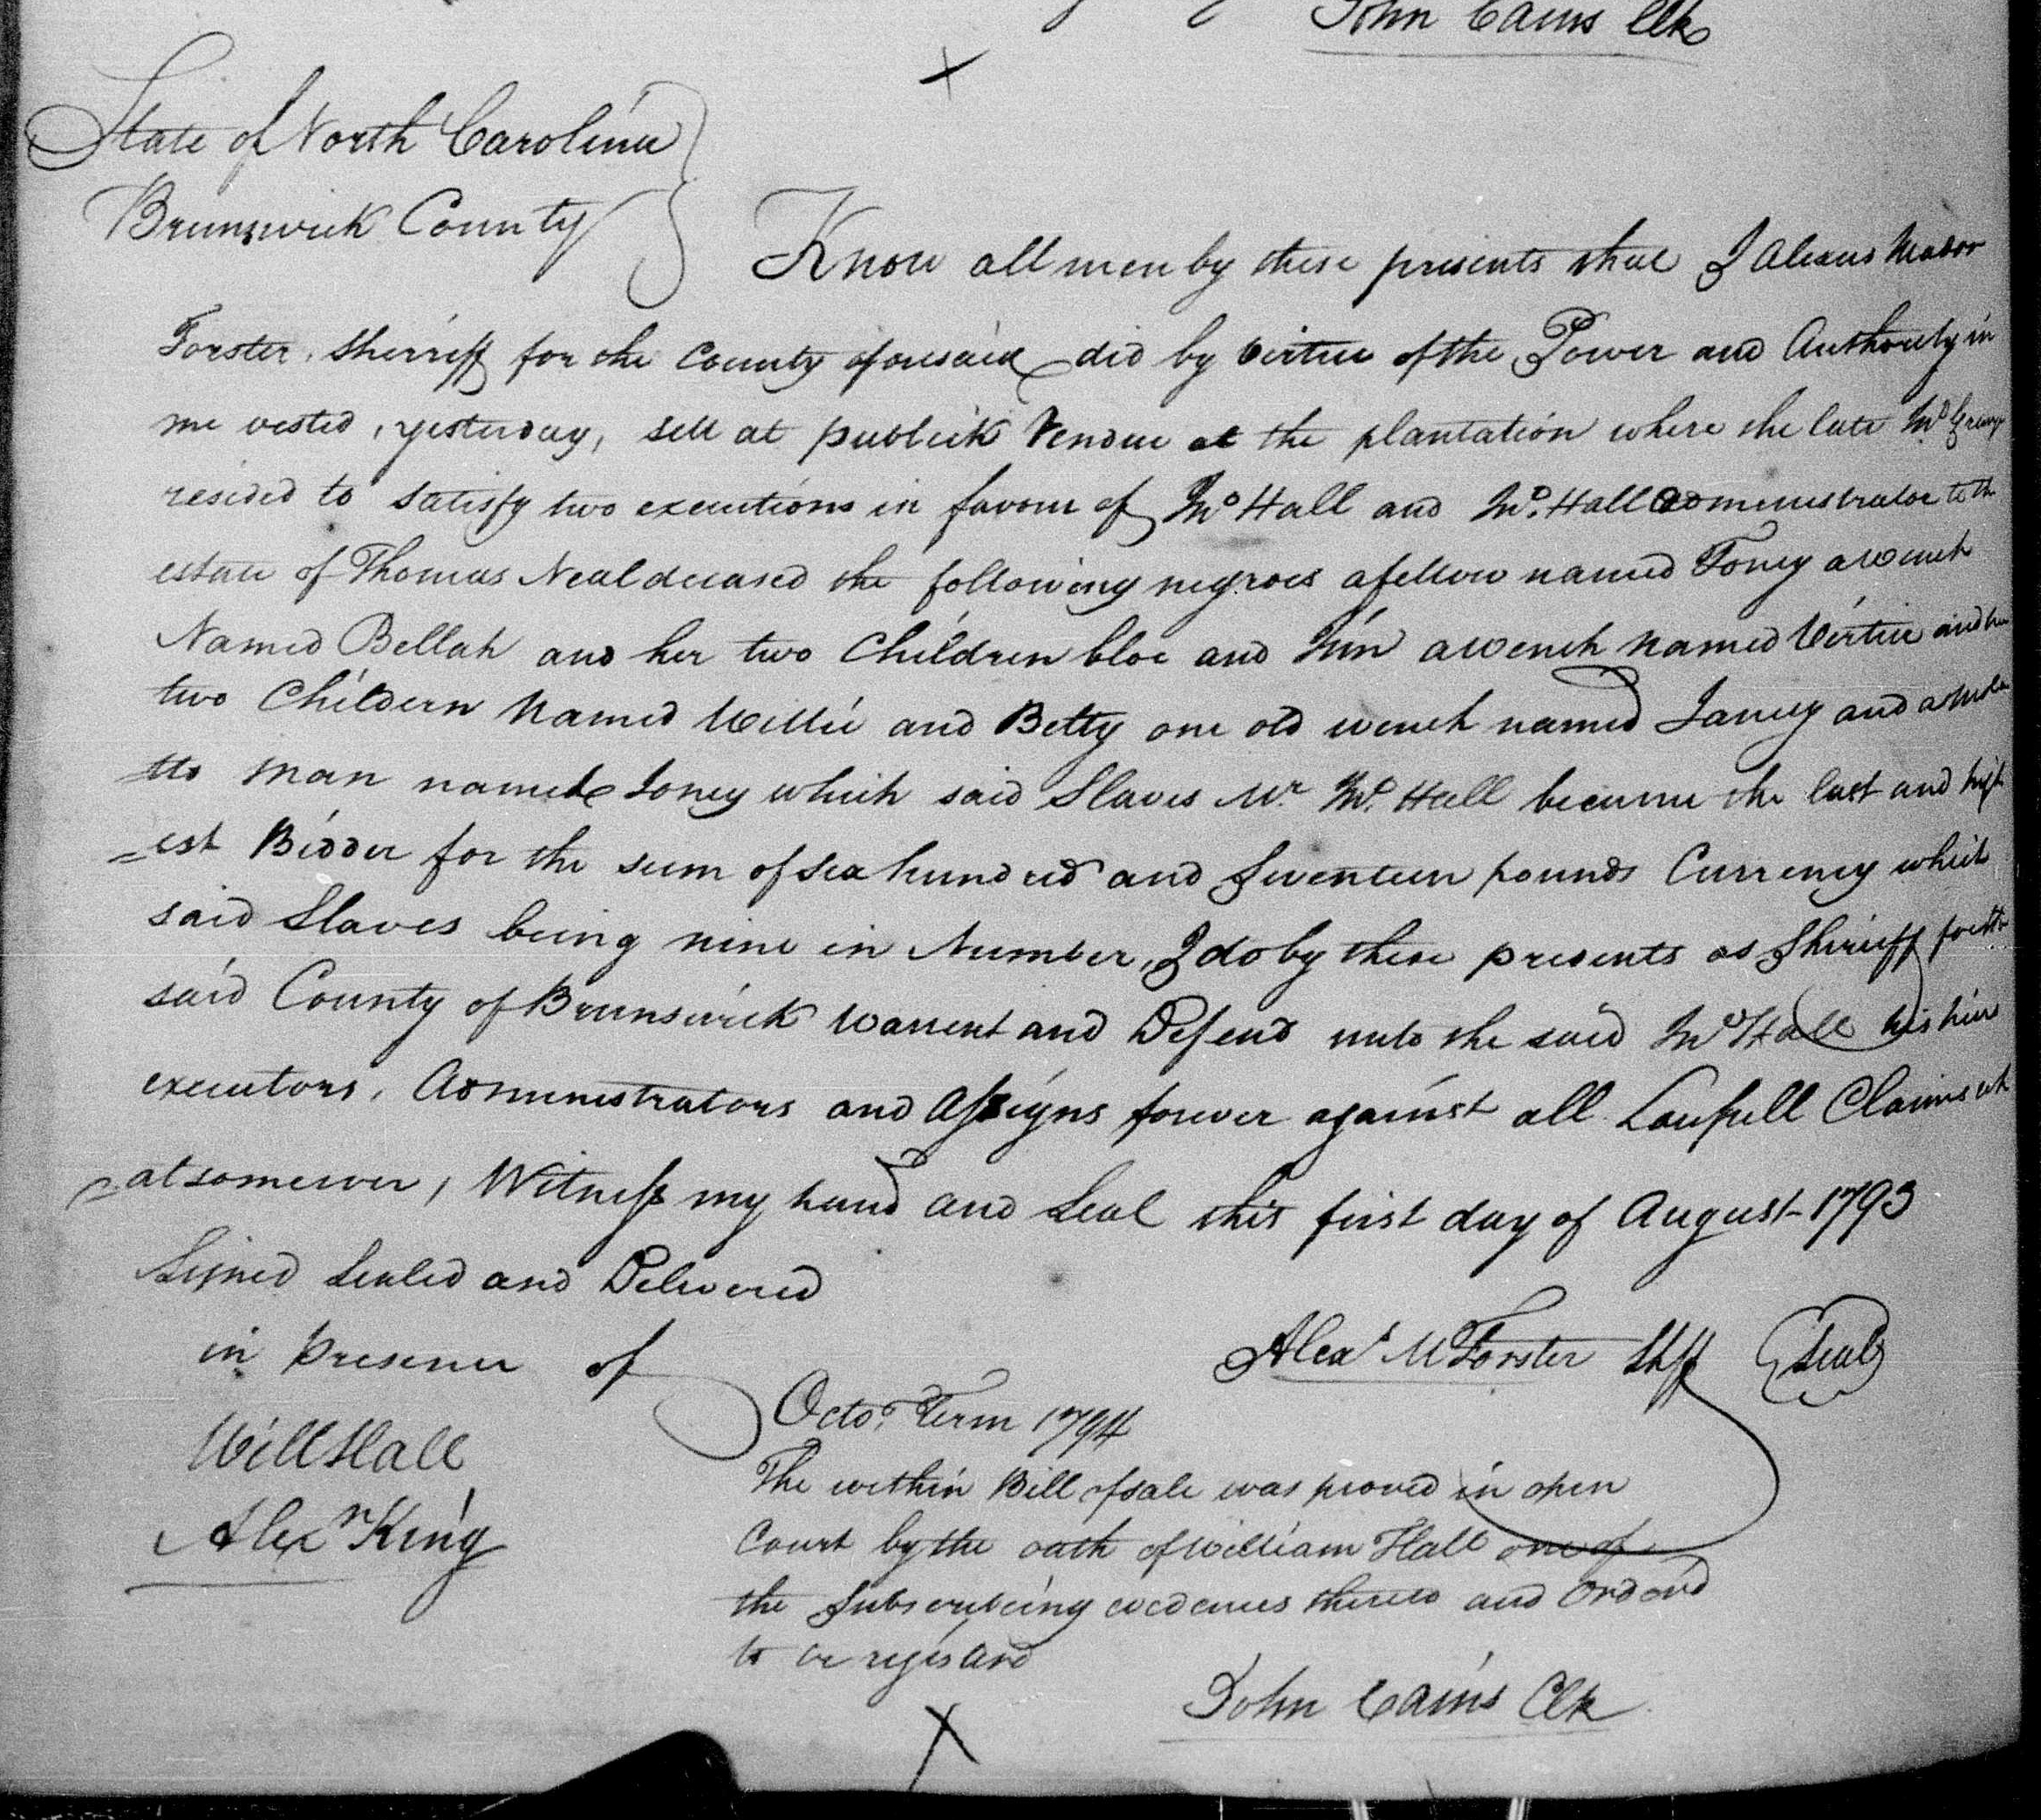 John Cains Clk
State of North Carolina
Brunswick County
Know all men by these presents that I Alexander
Forster, Sherriff for the County aforesaid did by Virtue of the Power and Authority in
me vested, yesterday, sell at publick Vendue at the plantation where the late Jno
resided to satisfy two executions in favour of Jno Hall and Jno. Hall administrator to the
estate of Thomas Neal deceased the following negroes a fellow named Toney a wench
Named Bellah and her two Children and a wench Named Virtue and her
two Childern Named Willie and Betty one old wench named Jancy and a Mula
tto man named Toney which said Slaves Mr. Jno. Hall became the last and high
=est Bidder for the sum of six hundred and Seventeen pounds Currency which
said Slaves being nine in Number, I do by these presents as Sheriff for the
said County of Brunswick warrent and Defend unto the said Jno Hall his heirs
executors, Administrators and Assigns forever against all Lawfull Claims wh
=atsomever, Witness my hand and Seal this first day of August 1793
Signed Sealed and Delivered
in presence of
Alexr McForster Shff (Seal)
Will Hall
Alexr King
Octo. Term 1794
The within Bill of sale was proved in open
Court by the oath of William Hall one of
the Subscribeing thereto and Ordord
to be registard
John Cains Clk